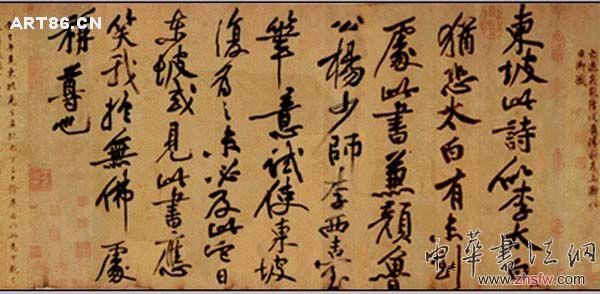 東坡此詩似李太白
猶恐太白有未到
處此書兼顏魯
公楊少師李西臺
筆意試使東坡
復為之未必及此它日
東坡或見此書應
笑我於無佛處
稱尊也
ART86.CN
中華書法網
www.zhsfw.com